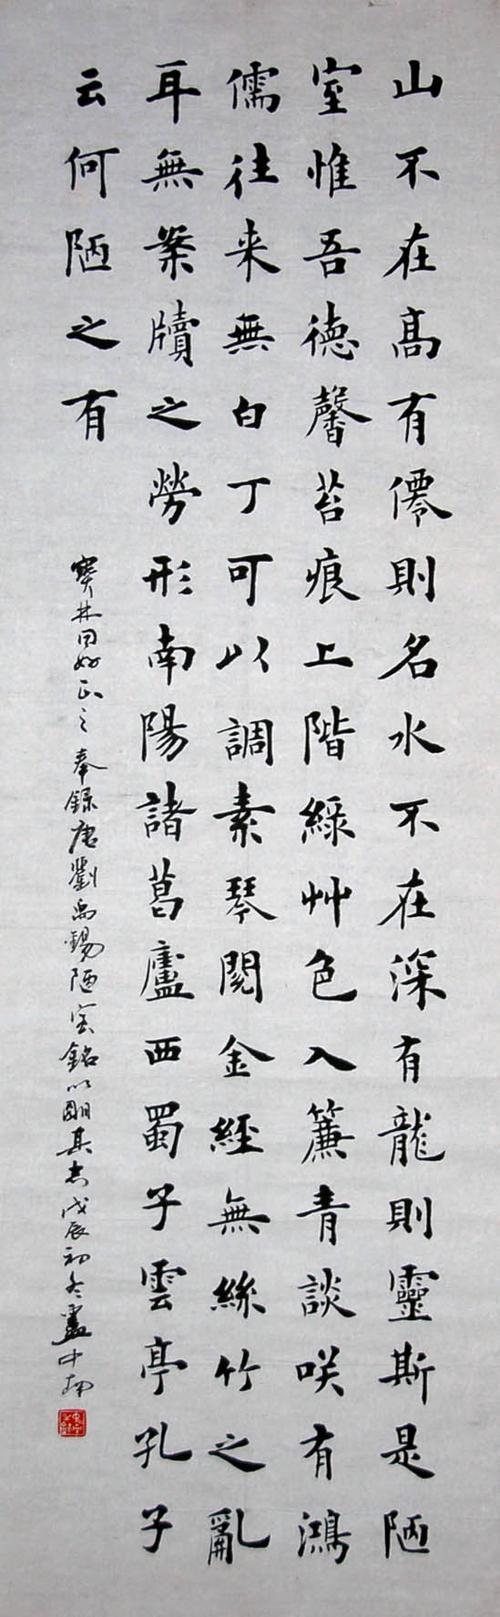 山不在高有僊則名水不在深有龍則靈斯是陋
室惟吾德馨苔痕上階綠艸色入簾青談咲有鴻
儒往来無白丁可以調素琴閱金經無絲竹之亂
耳無案牘之勞形南陽諸葛廬西蜀子雲亭孔子
云何陋之有
寶林同好正之奉錄唐劉禹錫陋室銘以明其志戊辰初冬